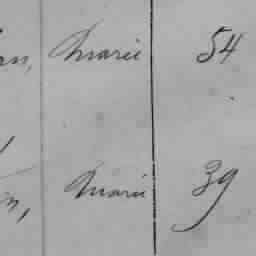 Marie 54
Marie 39